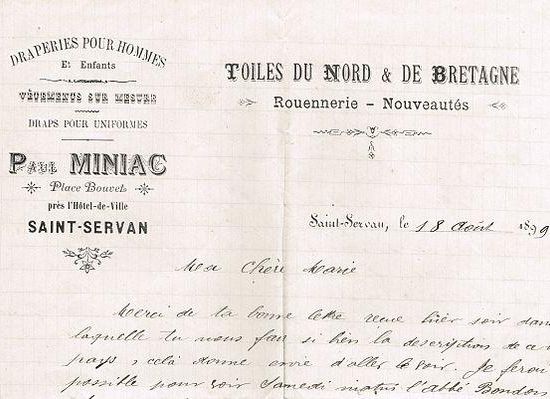 DRAPERIES POUR HOMMES
Et Enfants
VÊTEMENTS SUR MESURE
DRAPS POUR UNIFORMES
PAUL MINIAC
Place Bouvet
près l'Hôtel-de-Ville
SAINT-SERVAN
TOILES DU NORD & DE BRETAGNE
Rouennerie - Nouveautés
Saint-Servan, le 18 Août 1899
Ma Chère Marie
Merci de ta bonne lettre reçue hier soir dans
laquelle tu nous fais si bien la description de
pays, celà donne envie d'aller le voir. Je ferai
possible pour voir Samedi matin l'abbé